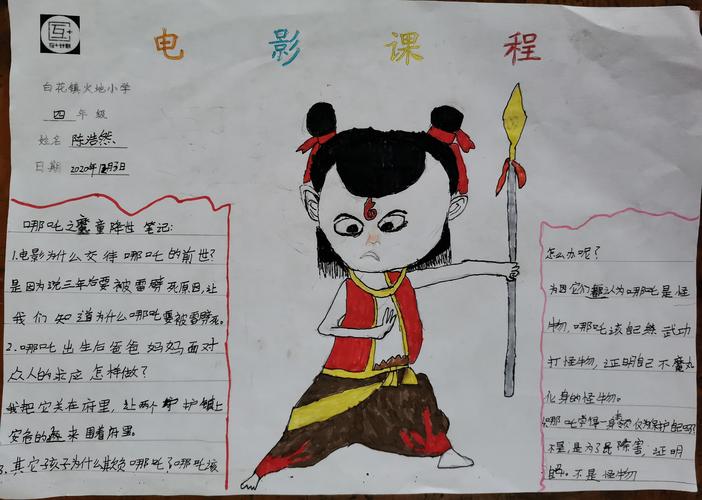 互+
互+计划
电影课程
白花镇火地小学
四 年 级
姓名 陈浩然
日期 2020年 月3日
哪吒之魔童降世 笔记:
1.电影为什么交待哪吒的前世?
是因为说三年后要被雷劈死原因,让
我们知道为什么哪吒要被雷劈死。
2.哪吒出生后爸爸妈妈面对
众人的 应怎样做?
我把它关在府里,让两个 护镇上
安危的 来围着府里。
3.其它子孩子为什么欺负哪吒了哪吒该
怎么办呢?
为因它们都认为哪吒是怪
物,哪吒该自己练武功
打怪物,证明自己不魔丸
化身的怪物。
4.哪吒学得一身 仅为保护自己吗?
不是,是为了民除害,证明
不是怪物